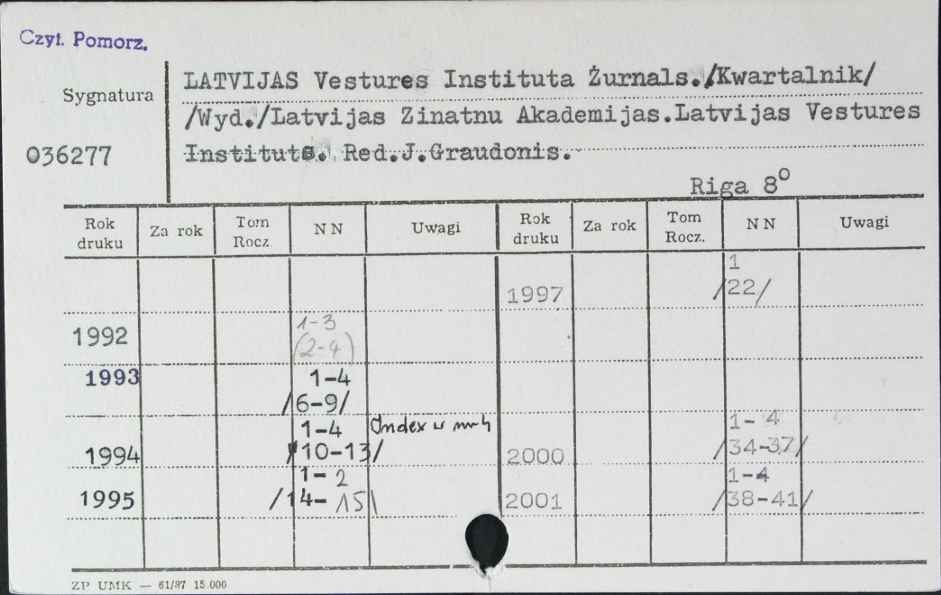 Czyt. Pomorz.
Sygnatura
036277
LATVIJAS Vestures Instituta Żurnals./Kwartalnik/
/Wyd./Latvijas Zinatnu Akademijas.Latvijas Vestures
Instituts. Red.J.Graudonis.
Riga 8º
Rok druku Za rok Tom Rocz. NN Uwagi Rok druku Za rok Tom Rocz. NN Uwagi
1997 1 /22/
1992 1-3 (2-4)
1993 1-4 /6-9/
1994 1-4 /10-13/ Index w nr 4 2000 1-4 /34-37/
1995 1-2 /14-15/ 2001 1-4 /38-41/
ZP UMK — 61/87 15.000